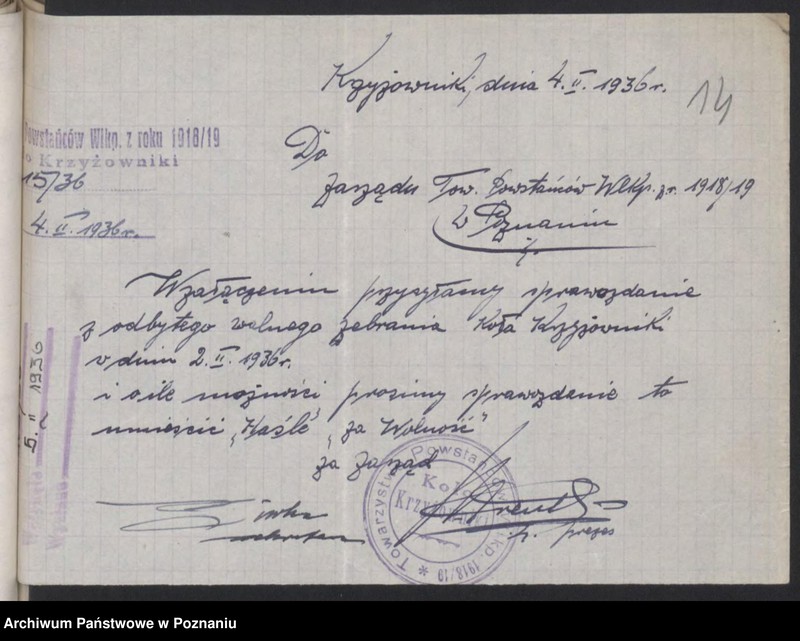 Krzyżowniki, dnia 4.II.1936r.
14
Powstańców Wlkp. z roku 1918/19
o Krzyżowniki
15/36
4.II.1936r.
Do
Zarządu Tow. Powstańców Wlkp. z r. 1918/19
w Poznaniu
W załączeniu przysyłamy sprawozdanie
z odbytego walnego zebrania Koła Krzyżowniki
w dniu 2.II.1936r.
i o ile możności prosimy sprawozdanie to
umieścić "Haśle" "za Wolność"
za Zarząd
5. II 1936
Towarzystwo Powstańców Wlkp. 1918/19
Koło
Krzyżowniki
sekretarz
prezes
Archiwum Państwowe w Poznaniu